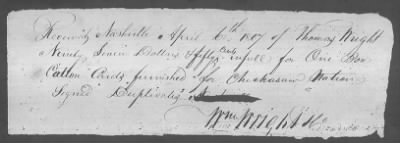 Received Nashville April 6th 1807 of Thomas Wright
Ninety Seven Dollars fifty Cents in full for One Box
Cotton Cards furnished for Chickasaw Nation
Signed Duplicates
Wm Wright &